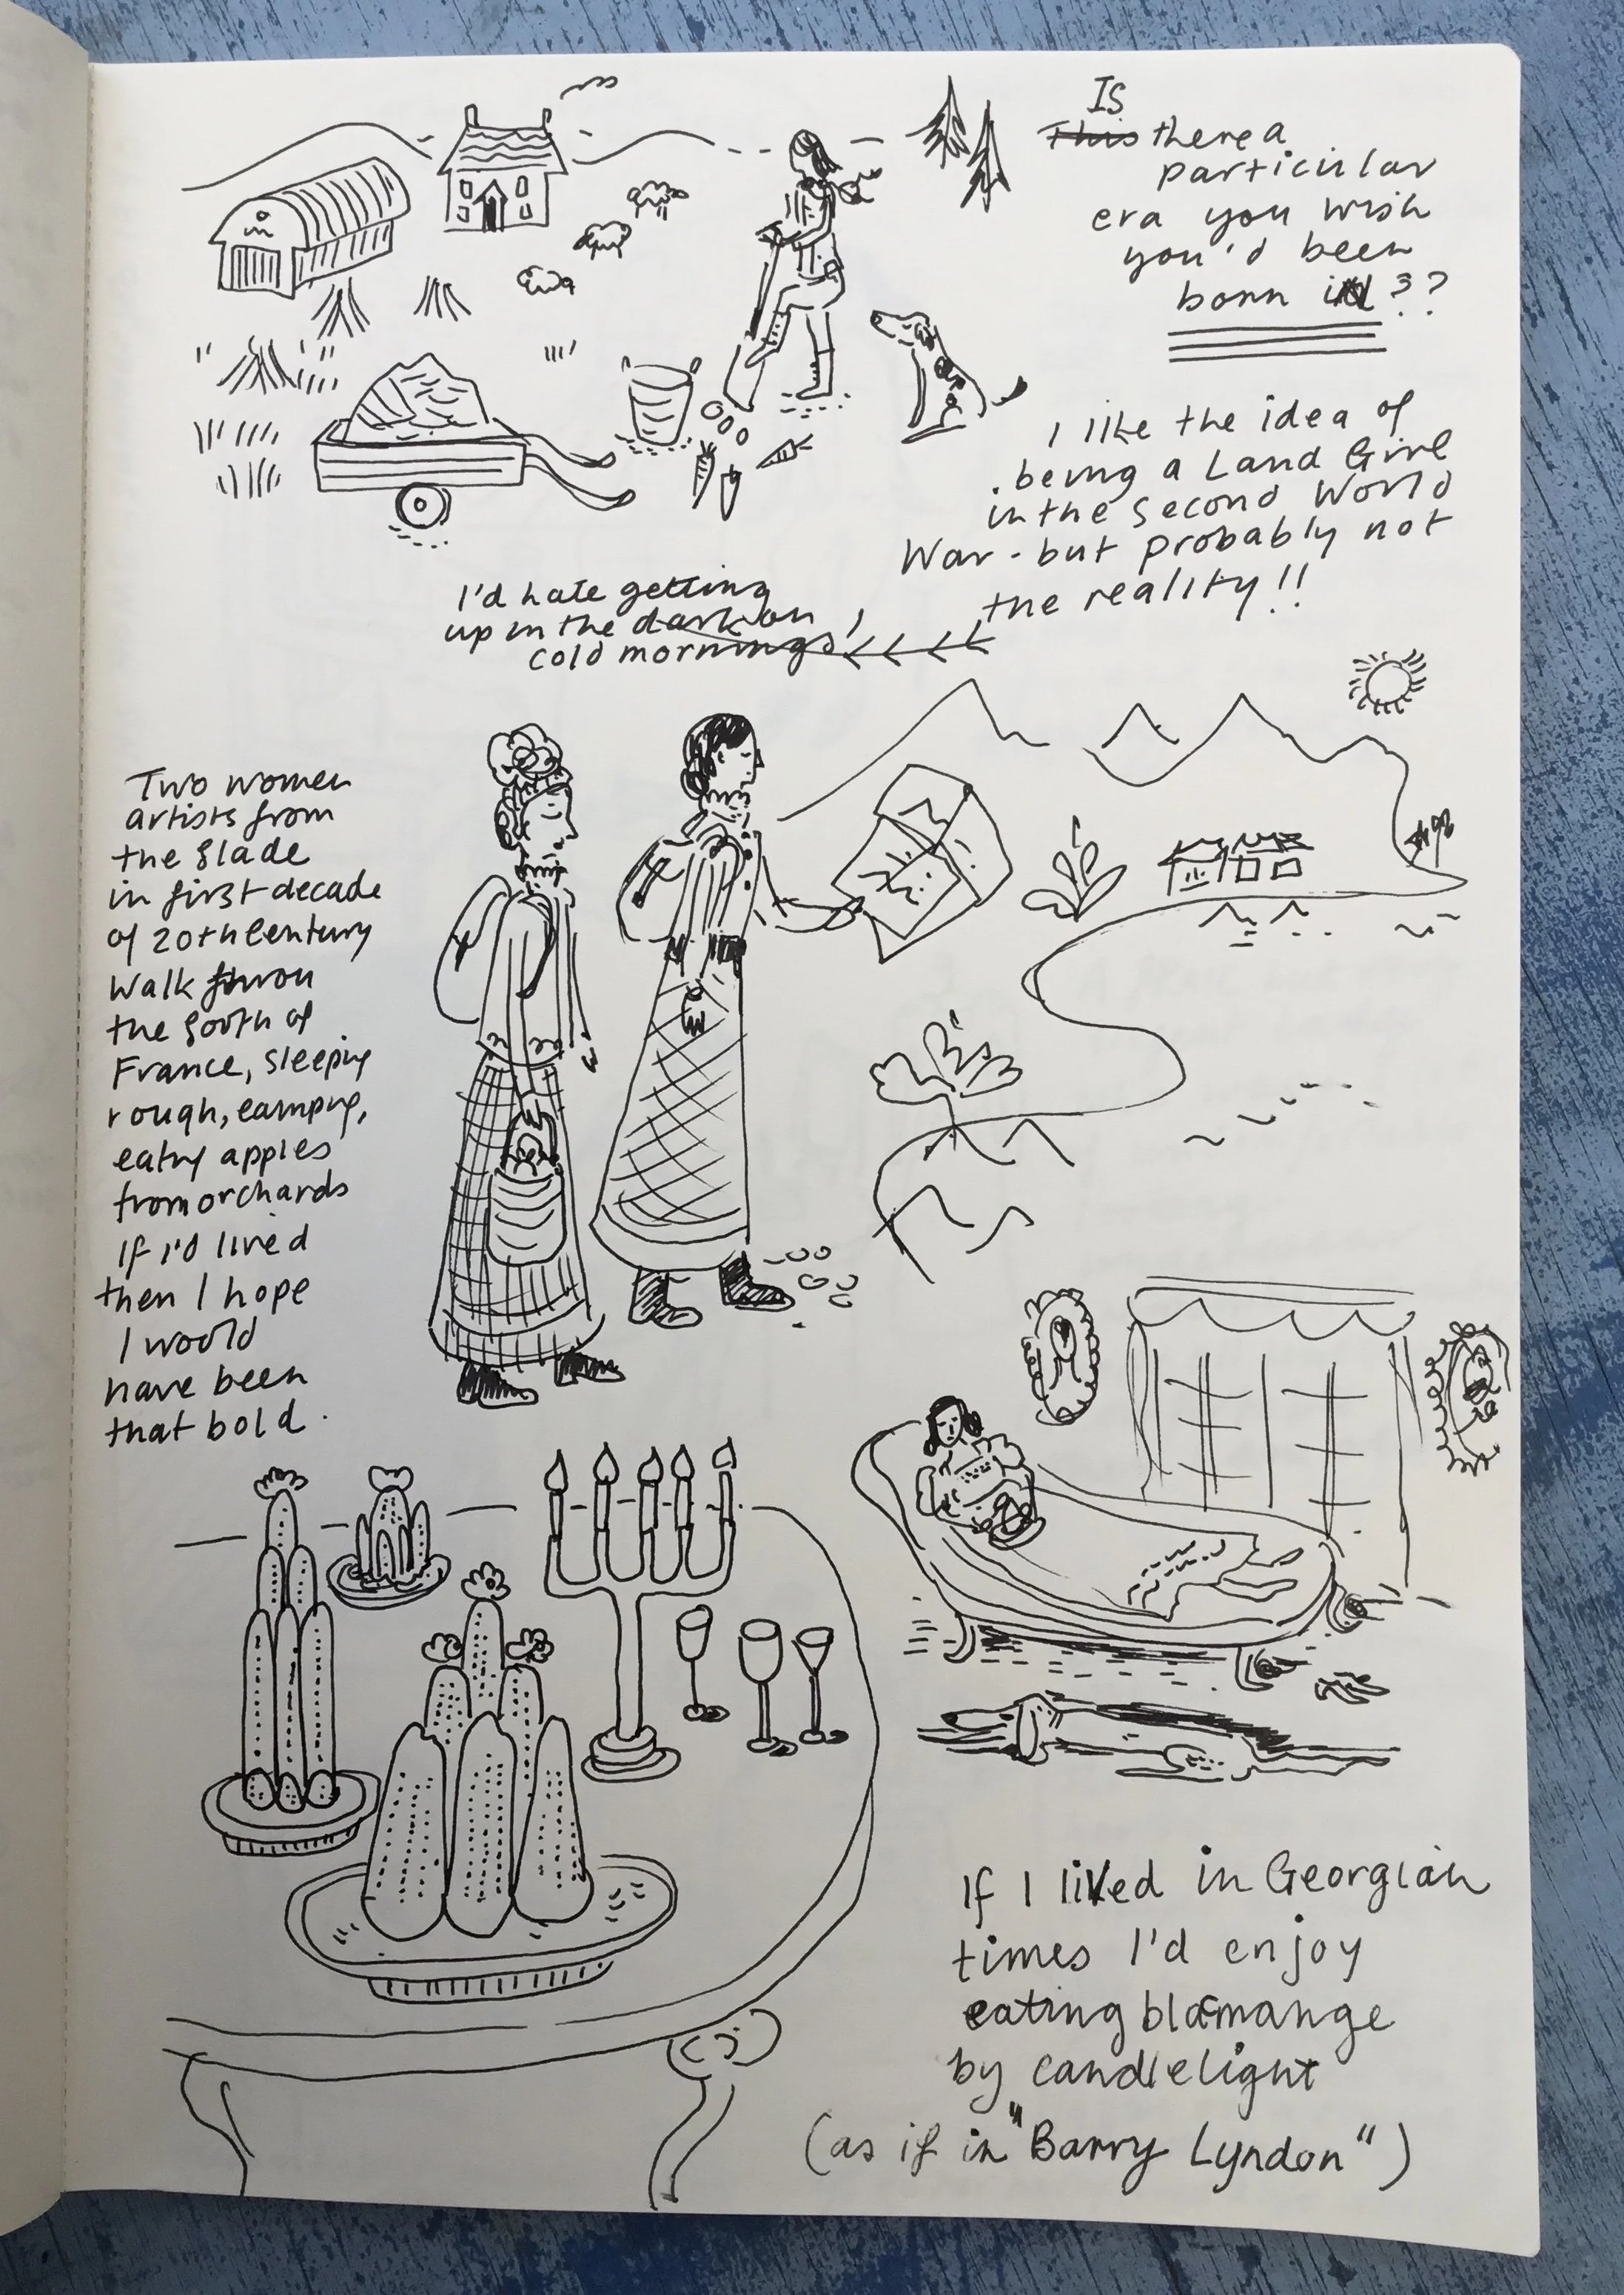 IS
This there a
particular
era you wish
you'd been
born in??
I like the idea of
being a Land Girl
in the Second World
War - but probably not
the reality!!
I'd hate getting
up in the dark on
cold mornings!
Two women
artists from
the Slade
in first decade
of 20th Century
walk throu
the South of
France, sleeping
rough, camping,
eating apples
from orchards
If I'd lived
then I hope
I would
have been
that bold.
If I lived in Georgian
times I'd enjoy
eating blamange
by candlelight
(as if in "Barry Lyndon")